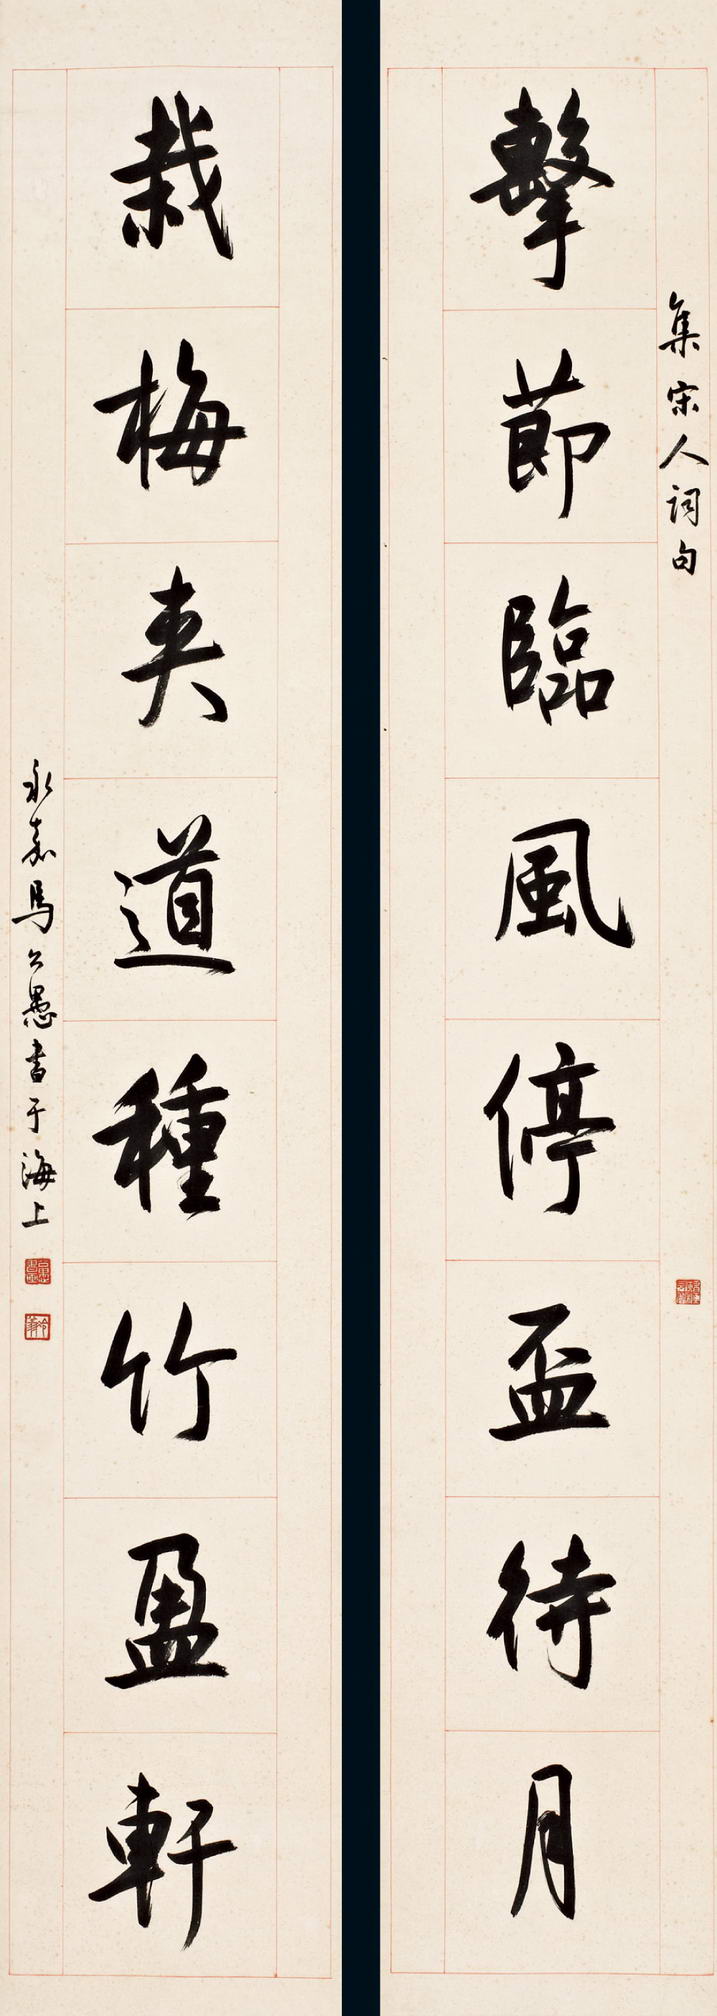 集宋人詞句
擊節臨風停盃待月
栽梅夾道種竹盈軒
永嘉馬公愚書于海上